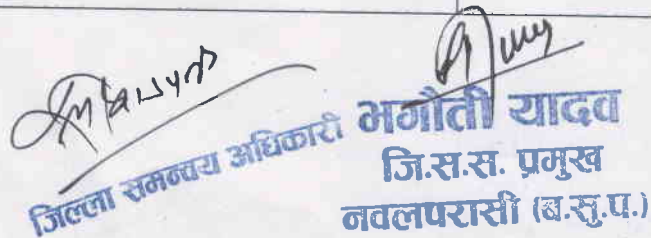 जिल्ला समन्वय अधिकारी
भगौती यादव
जि.स.स. प्रमुख
नवलपरासी (ब.सु.प.)